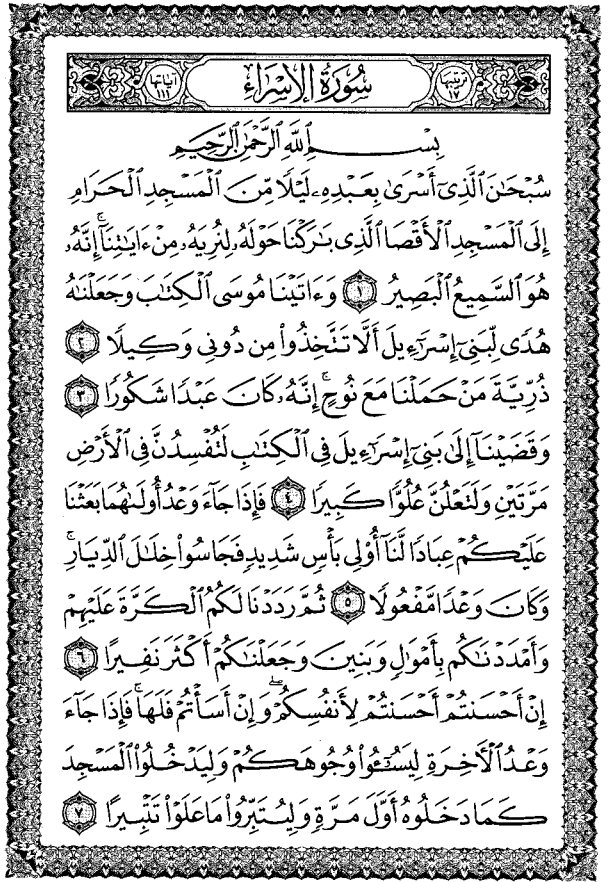 ترتيبها ١٧ سُورَةُ الإِسْرَاءِ آياتها ١١١
بِسْمِ اللَّهِ الرَّحْمَٰنِ الرَّحِيمِ
سُبْحَٰنَ ٱلَّذِىٓ أَسْرَىٰ بِعَبْدِهِۦ لَيْلًا مِّنَ ٱلْمَسْجِدِ ٱلْحَرَامِ
إِلَى ٱلْمَسْجِدِ ٱلْأَقْصَا ٱلَّذِى بَٰرَكْنَا حَوْلَهُۥ لِنُرِيَهُۥ مِنْ ءَايَٰتِنَآ ۚ إِنَّهُۥ
هُوَ ٱلسَّمِيعُ ٱلْبَصِيرُ ١ وَءَاتَيْنَا مُوسَى ٱلْكِتَٰبَ وَجَعَلْنَٰهُ
هُدًى لِّبَنِىٓ إِسْرَٰٓءِيلَ أَلَّا تَتَّخِذُوا۟ مِن دُونِى وَكِيلًا ٢
ذُرِّيَّةَ مَنْ حَمَلْنَا مَعَ نُوحٍ ۚ إِنَّهُۥ كَانَ عَبْدًا شَكُورًا ٣
وَقَضَيْنَآ إِلَىٰ بَنِىٓ إِسْرَٰٓءِيلَ فِى ٱلْكِتَٰبِ لَتُفْسِدُنَّ فِى ٱلْأَرْضِ
مَرَّتَيْنِ وَلَتَعْلُنَّ عُلُوًّا كَبِيرًا ٤ فَإِذَا جَآءَ وَعْدُ أُولَىٰهُمَا بَعَثْنَا
عَلَيْكُمْ عِبَادًا لَّنَآ أُو۟لِى بَأْسٍ شَدِيدٍ فَجَاسُوا۟ خِلَٰلَ ٱلدِّيَارِ ۚ
وَكَانَ وَعْدًا مَّفْعُولًا ٥ ثُمَّ رَدَدْنَا لَكُمُ ٱلْكَرَّةَ عَلَيْهِمْ
وَأَمْدَدْنَٰكُم بِأَمْوَٰلٍ وَبَنِينَ وَجَعَلْنَٰكُمْ أَكْثَرَ نَفِيرًا ٦
إِنْ أَحْسَنتُمْ أَحْسَنتُمْ لِأَنفُسِكُمْ ۖ وَإِنْ أَسَأْتُمْ فَلَهَا ۚ فَإِذَا جَآءَ
وَعْدُ ٱلْءَاخِرَةِ لِيَسُۥٓـُٔوا۟ وُجُوهَكُمْ وَلِيَدْخُلُوا۟ ٱلْمَسْجِدَ
كَمَا دَخَلُوهُ أَوَّلَ مَرَّةٍ وَلِيُتَبِّرُوا۟ مَا عَلَوْا۟ تَتْبِيرًا ٧